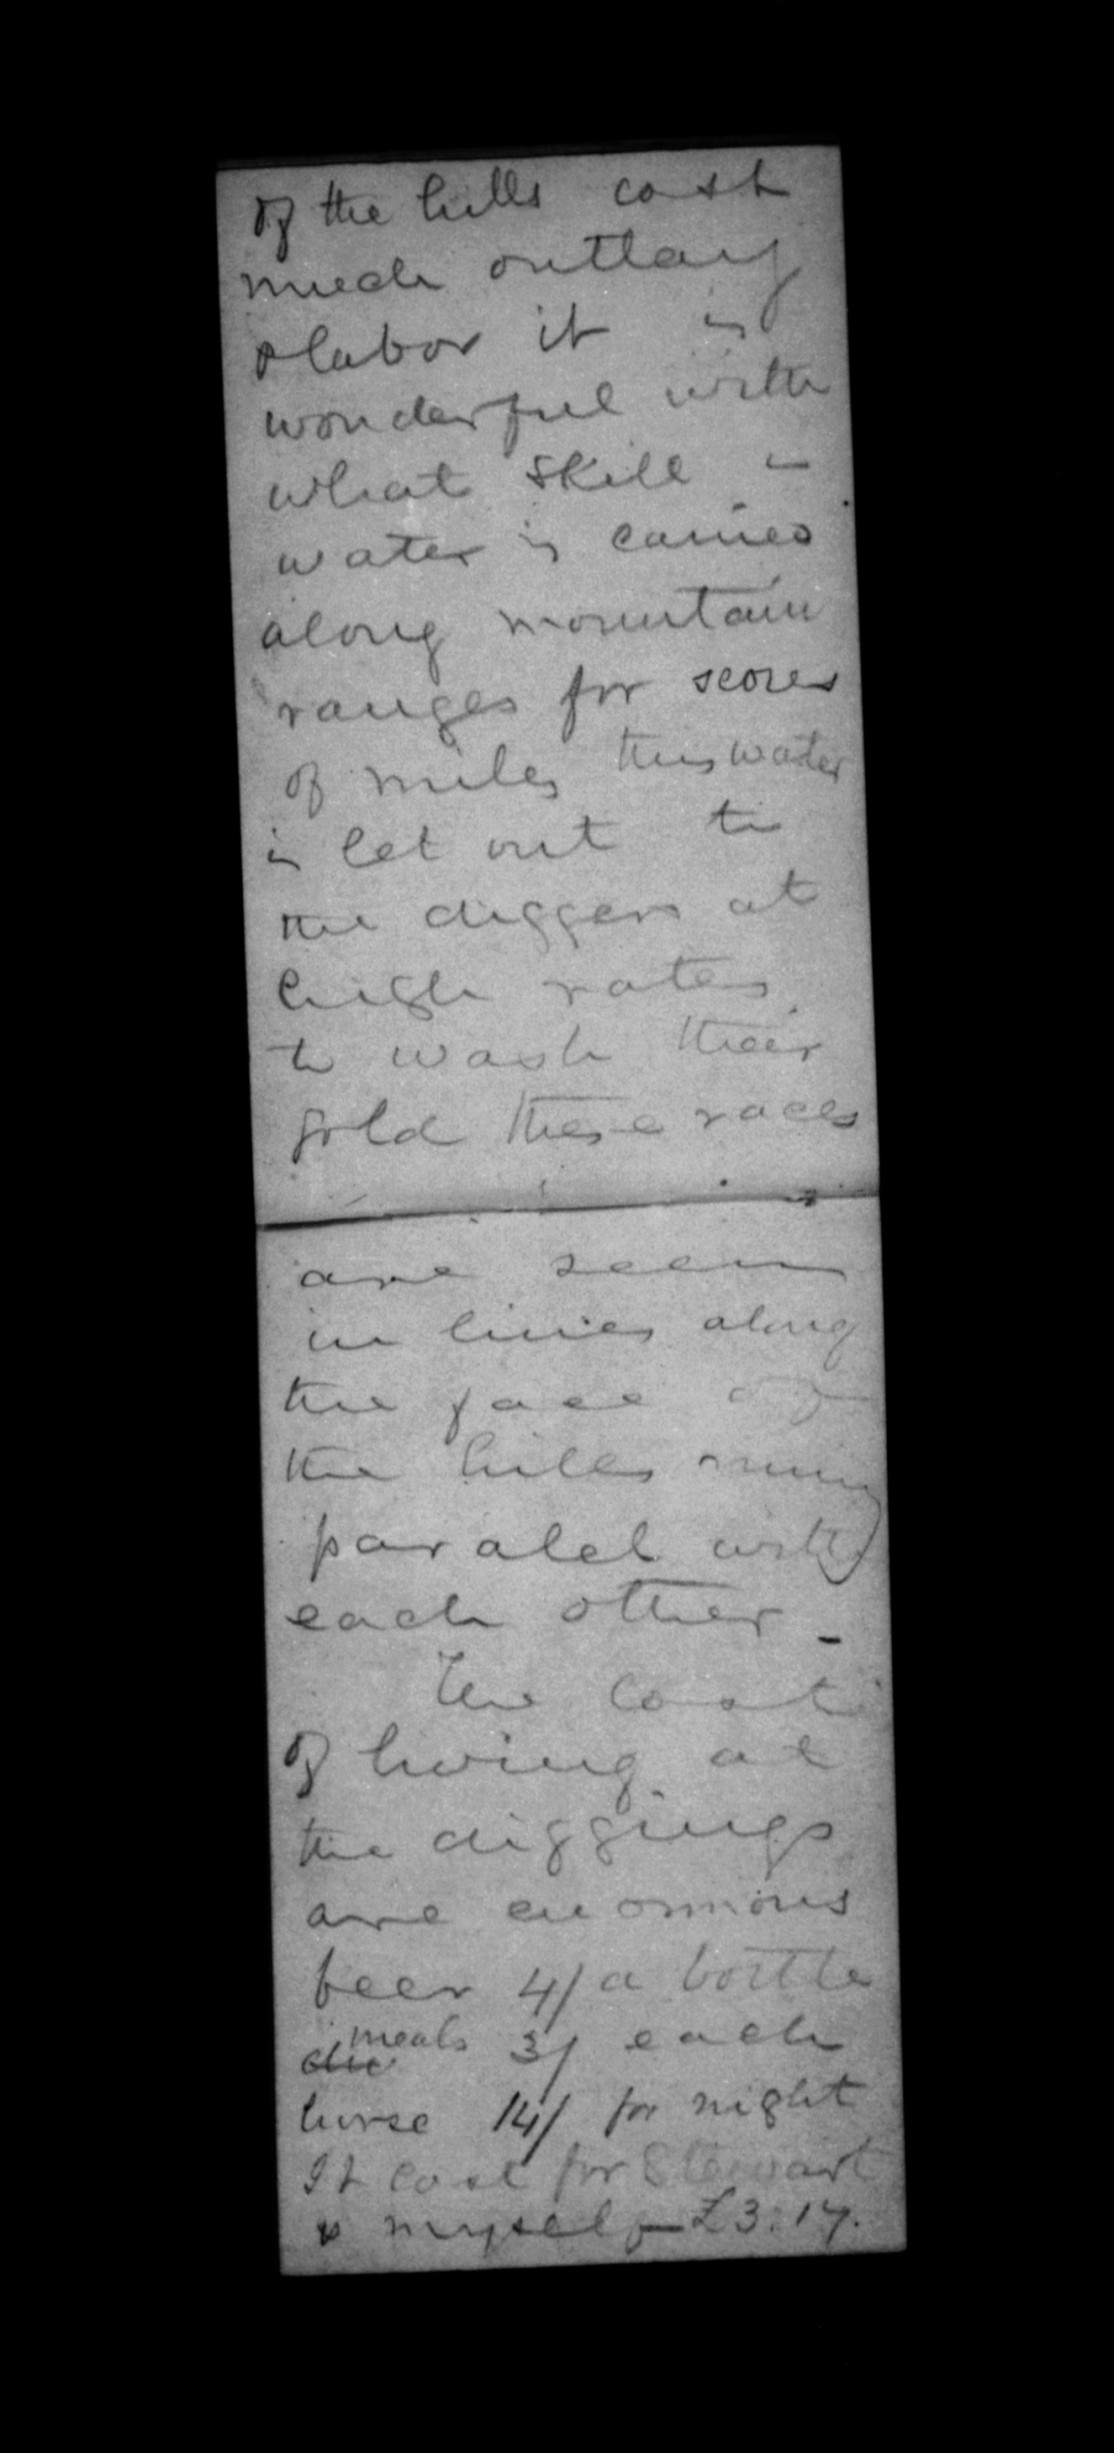 of the hills cost
much outlay
& labor it is
wonderful with
what skill -
water is carried
along mountain
ranges for scores
of miles this water
is let out to
the diggers at
high rates
to wash their
gold these races
are seen
in lines along
the face of
the hills runing
paralel with
each other -
The cost
of living at
the diggings
are enormous
beer 4/ a bottle
meals 3/ each
horse 14/ for night
It cost for Stewart
& myself - £3:17.